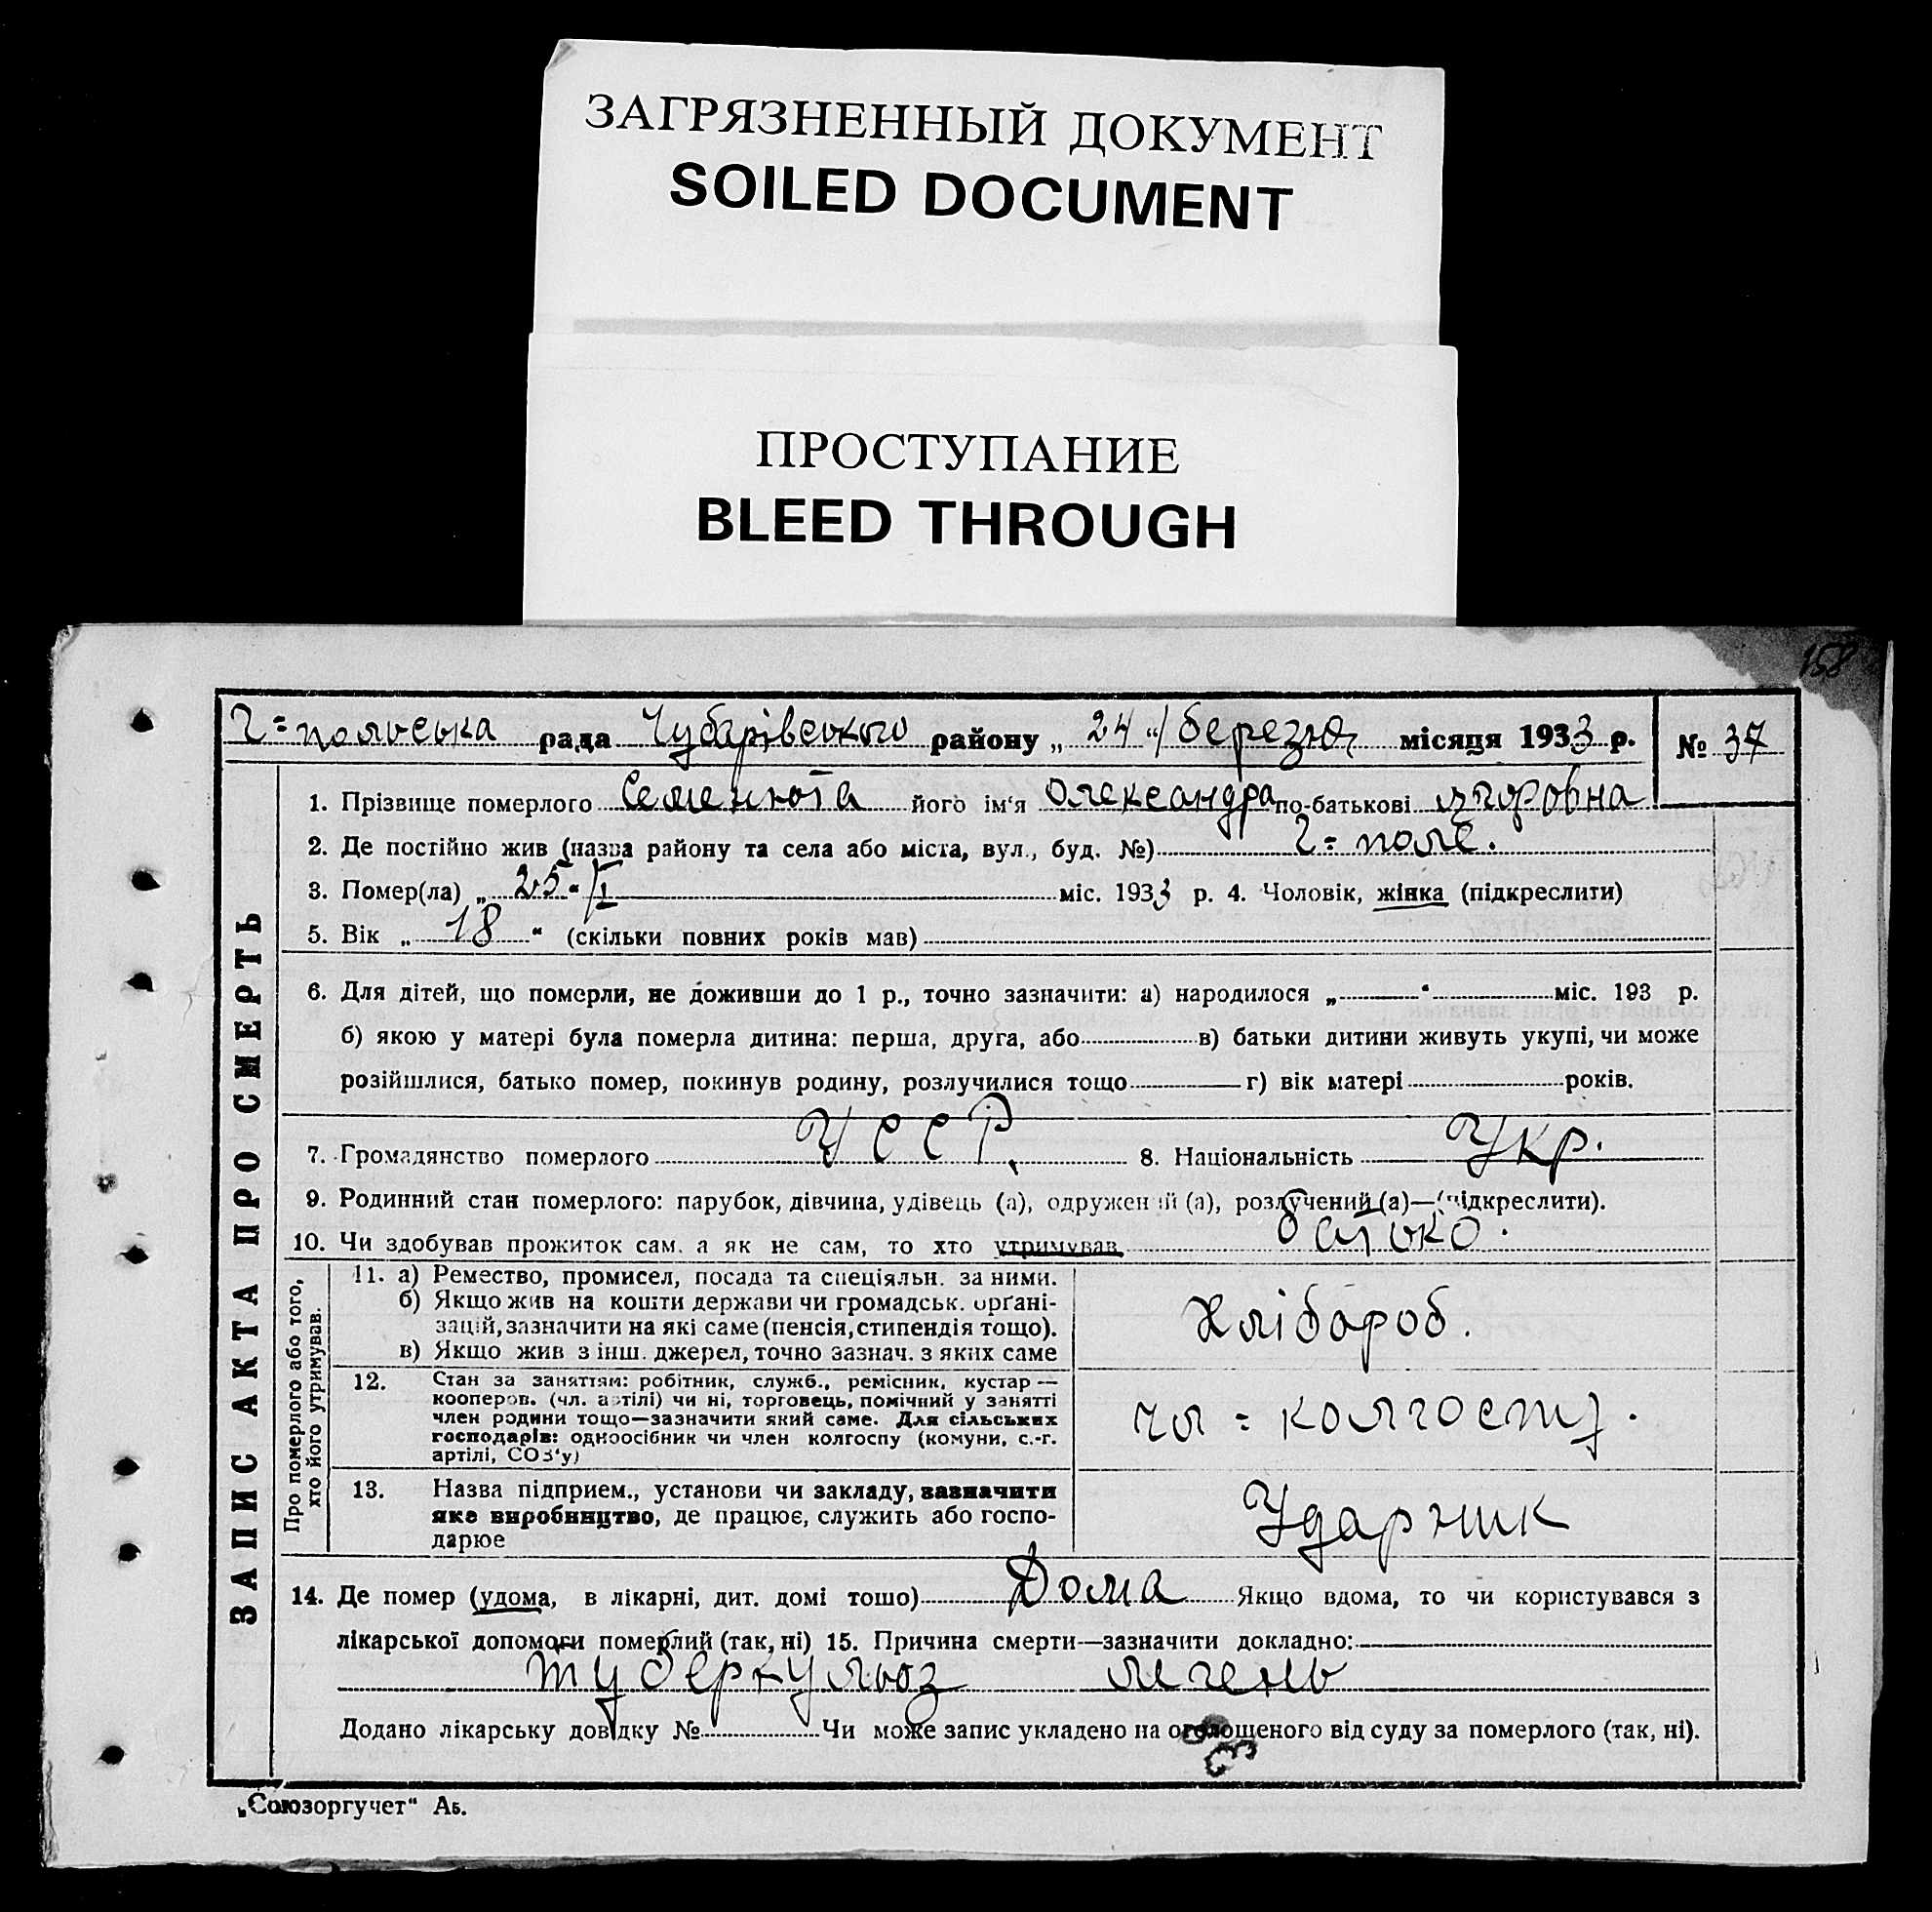 ЗАГРЯЗНЕННЫЙ ДОКУМЕНТ
SOILED DOCUMENT
ПРОСТУПАНИЕ
BLEED THROUGH
158
Г=польська рада Чубарівського району „ 24 “ березня місяця 1933 р. № 37
ЗАПИС АКТА ПРО СМЕРТЬ
1. Прізвище померлого Семенюта його ім'я Олександра по-батькові
2. Де постійно жив (назва району та села або міста, вул., буд. №) Г=поле.
3. Помер(ла) „ 25 “ міс. 1933 р. 4. Чоловік, жінка (підкреслити)
5. Вік „ 18 “ (скільки повних років мав)
6. Для дітей, що померли, не доживши до 1 р., точно зазначити: а) народилося „ “ міс. 193 р.
б) якою у матері була померла дитина: перша, друга, або в) батьки дитини живуть укупі, чи може
розійшлися, батько помер, покинув родину, розлучилися тощо г) вік матері років.
7. Громадянство померлого УССР. 8. Національність Укр.
9. Родинний стан померлого: парубок, дівчина, удівець (а), одружений (а), розлучений (а)—(підкреслити).
10. Чи здобував прожиток сам. а як не сам, то хто утримував батько.
Про померлого або того,
хто його утримував.
11. а) Ремество, промисел, посада та спеціяльн. за ними.
б) Якщо жив на кошти держави чи громадськ. орґані-
зацій, зазначити на які саме (пенсія, стипендія тощо).
в) Якщо жив з інш. джерел, точно зазнач. з яких саме
Хлібороб.
12. Стан за заняттям: робітник, служб., ремісник, кустар —
кооперов. (чл. артілі) чи ні, торговець, помічний у занятті
член родини тощо—зазначити який саме. Для сільських
господарів: одноосібник чи член колгоспу (комуни, с.-г.
артілі, СОЗ'у)
чл = колгоспу.
13. Назва підприєм., установи чи закладу, зазначити
яке виробництво, де працює, служить або госпо-
дарює
Ударник
14. Де помер (удома, в лікарні, дит. домі тошо) Дома Якщо вдома, то чи користувався з
лікарської допомоги померлий (так, ні) 15. Причина смерти—зазначити докладно:
туберкульоз легень
Додано лікарську довідку № Чи може запис укладено на оголошеного від суду за померлого (так, ні).
„Союзоргучет“ Аб.